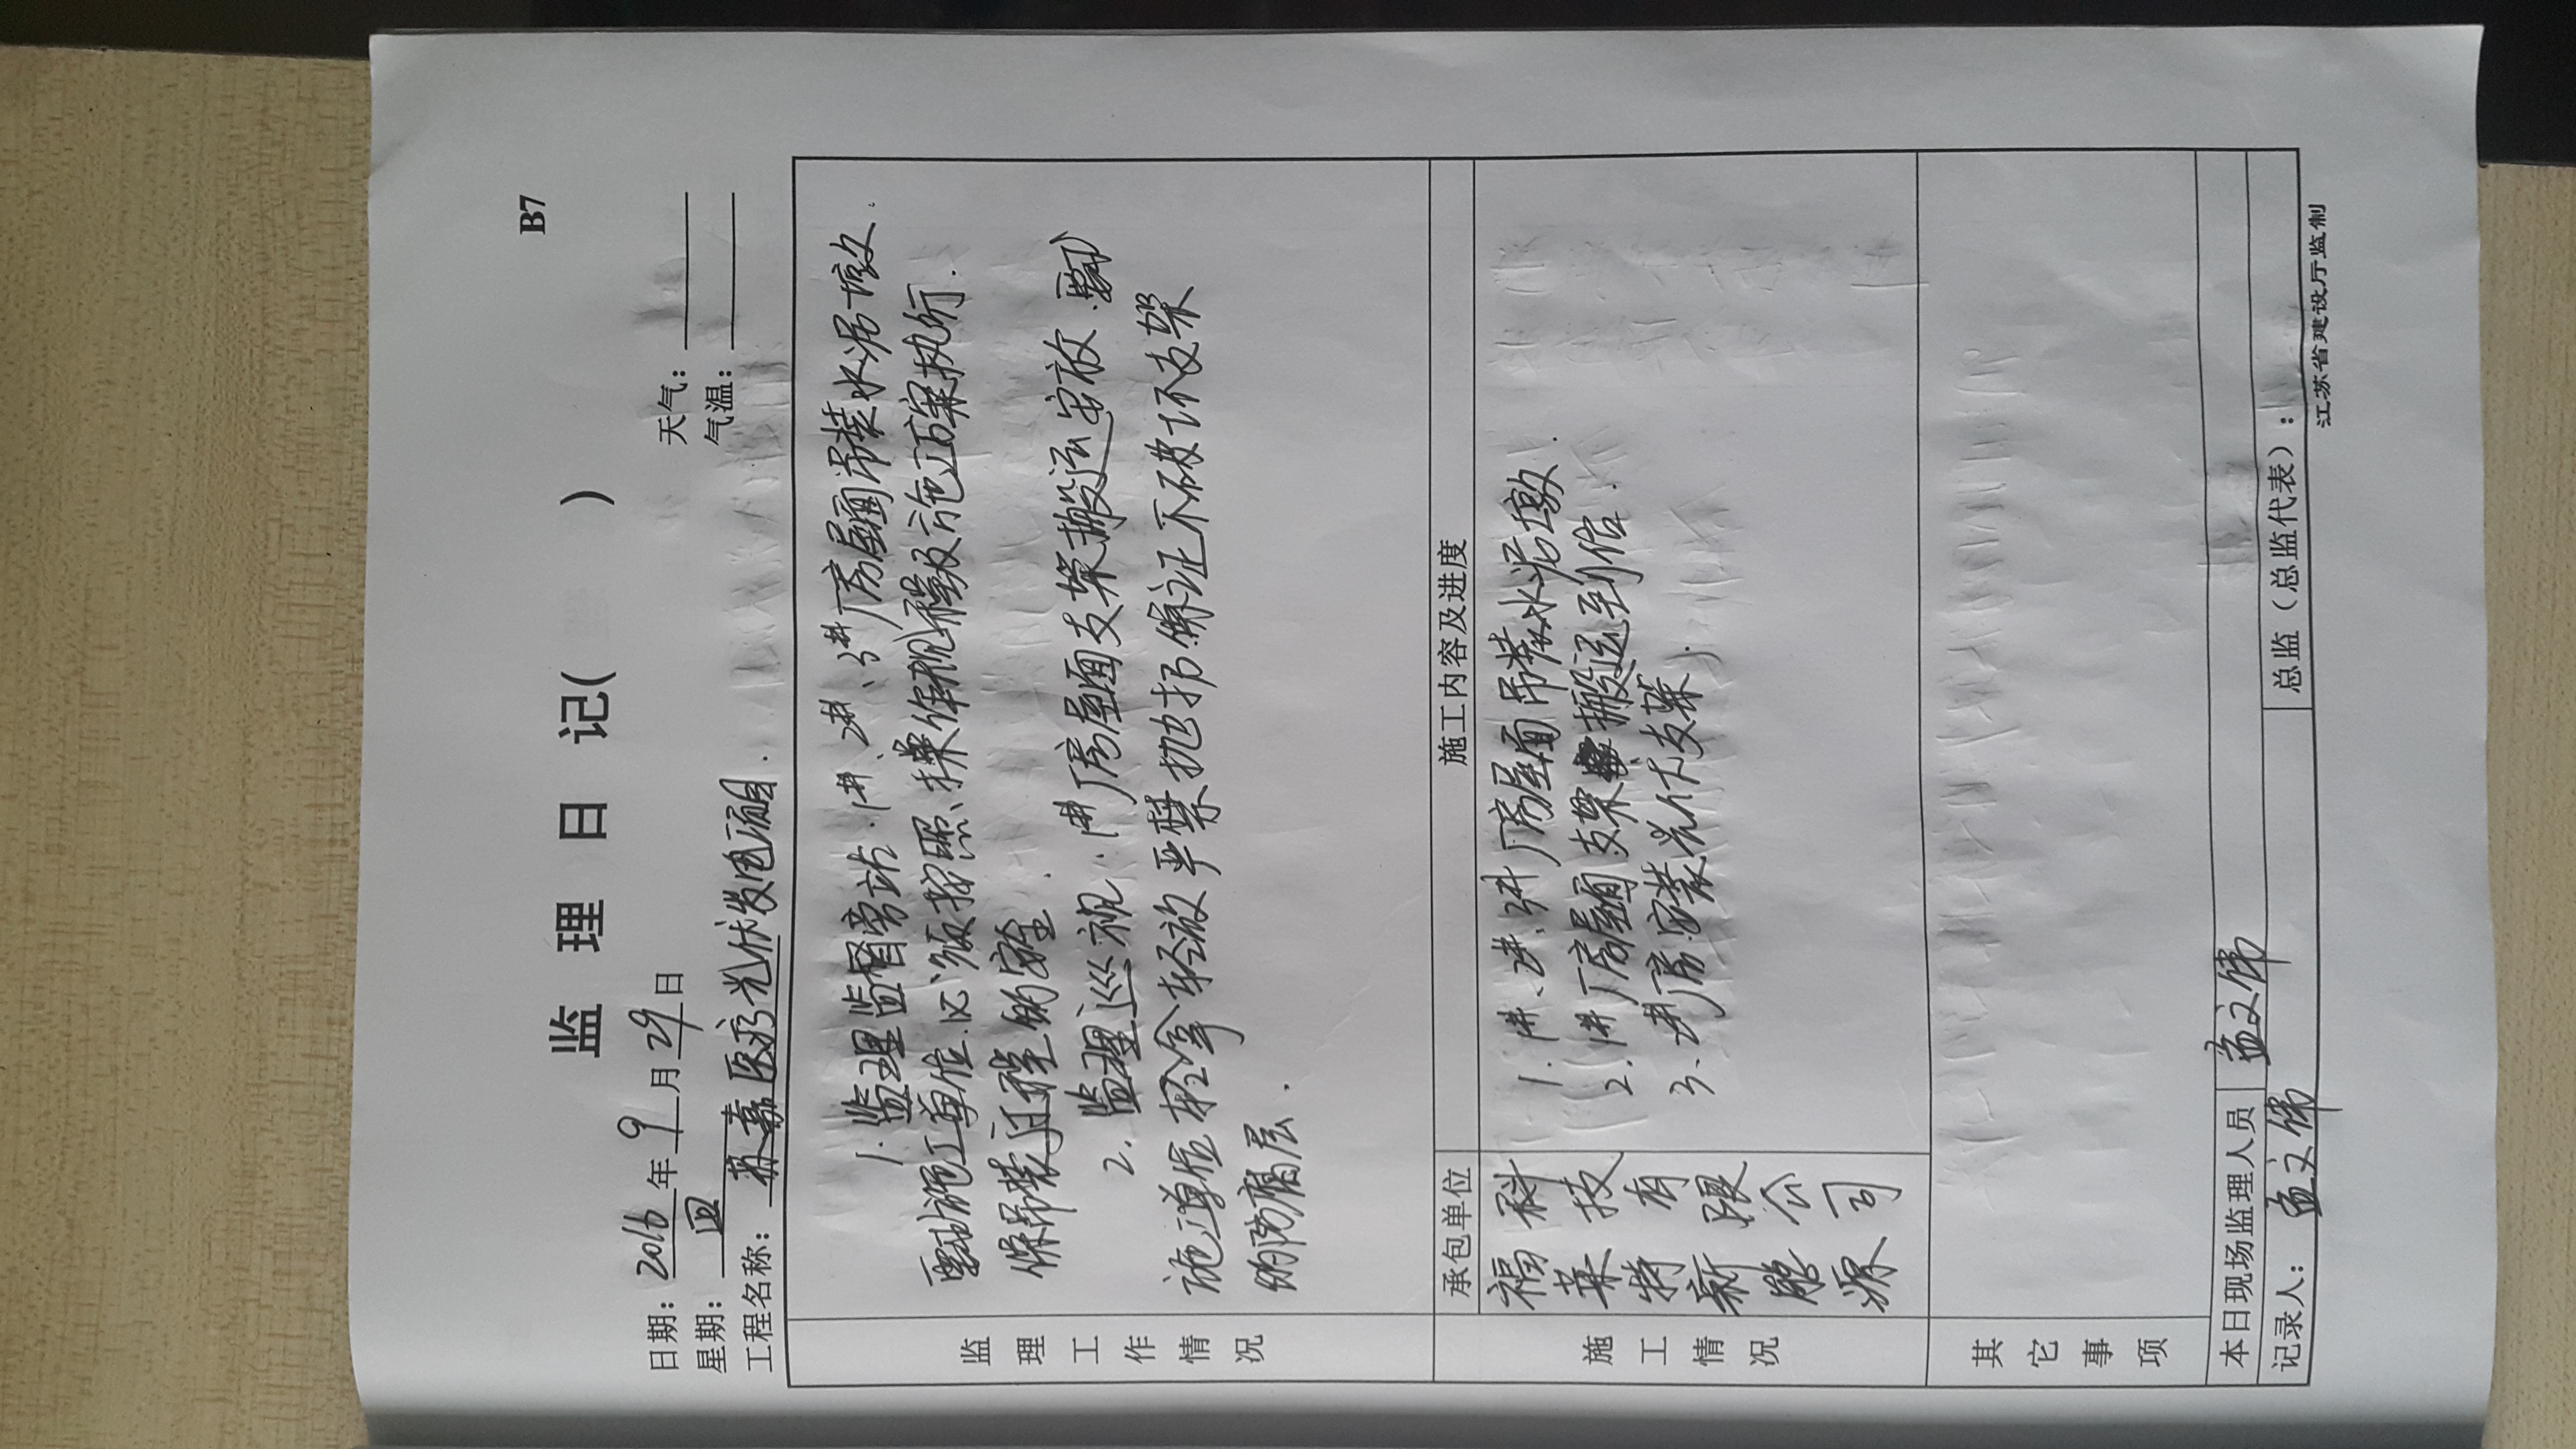 B7
监 理 日 记( )
日期：2016年9月29日 天气：
星期：四 气温：
工程名称：苏嘉医疗光伏发电项目.
监理工作情况
1.监理监督旁站.1#、2#、3#厂房屋面吊装水泥墩.
要求施工单位必须按照操作规程及施工方案执行.
保吊装过程的安全.
2.监理巡视.1#厂房屋面支架搬运安放.要求
施工单位轻拿轻放严禁抛扔保证不破坏支架
的防腐层.
施工情况
承包单位 施工内容及进度
福莱特新能源科技有限公司
1.1#、2#、3#厂房屋面吊装水泥墩.
2.1#厂房屋面支架搬运到位.
3、2#厂房安装光伏支架.
其它事项
本日现场监理人员 孟文伟
记录人：孟文伟 总监（总监代表）：
江苏省建设厅监制